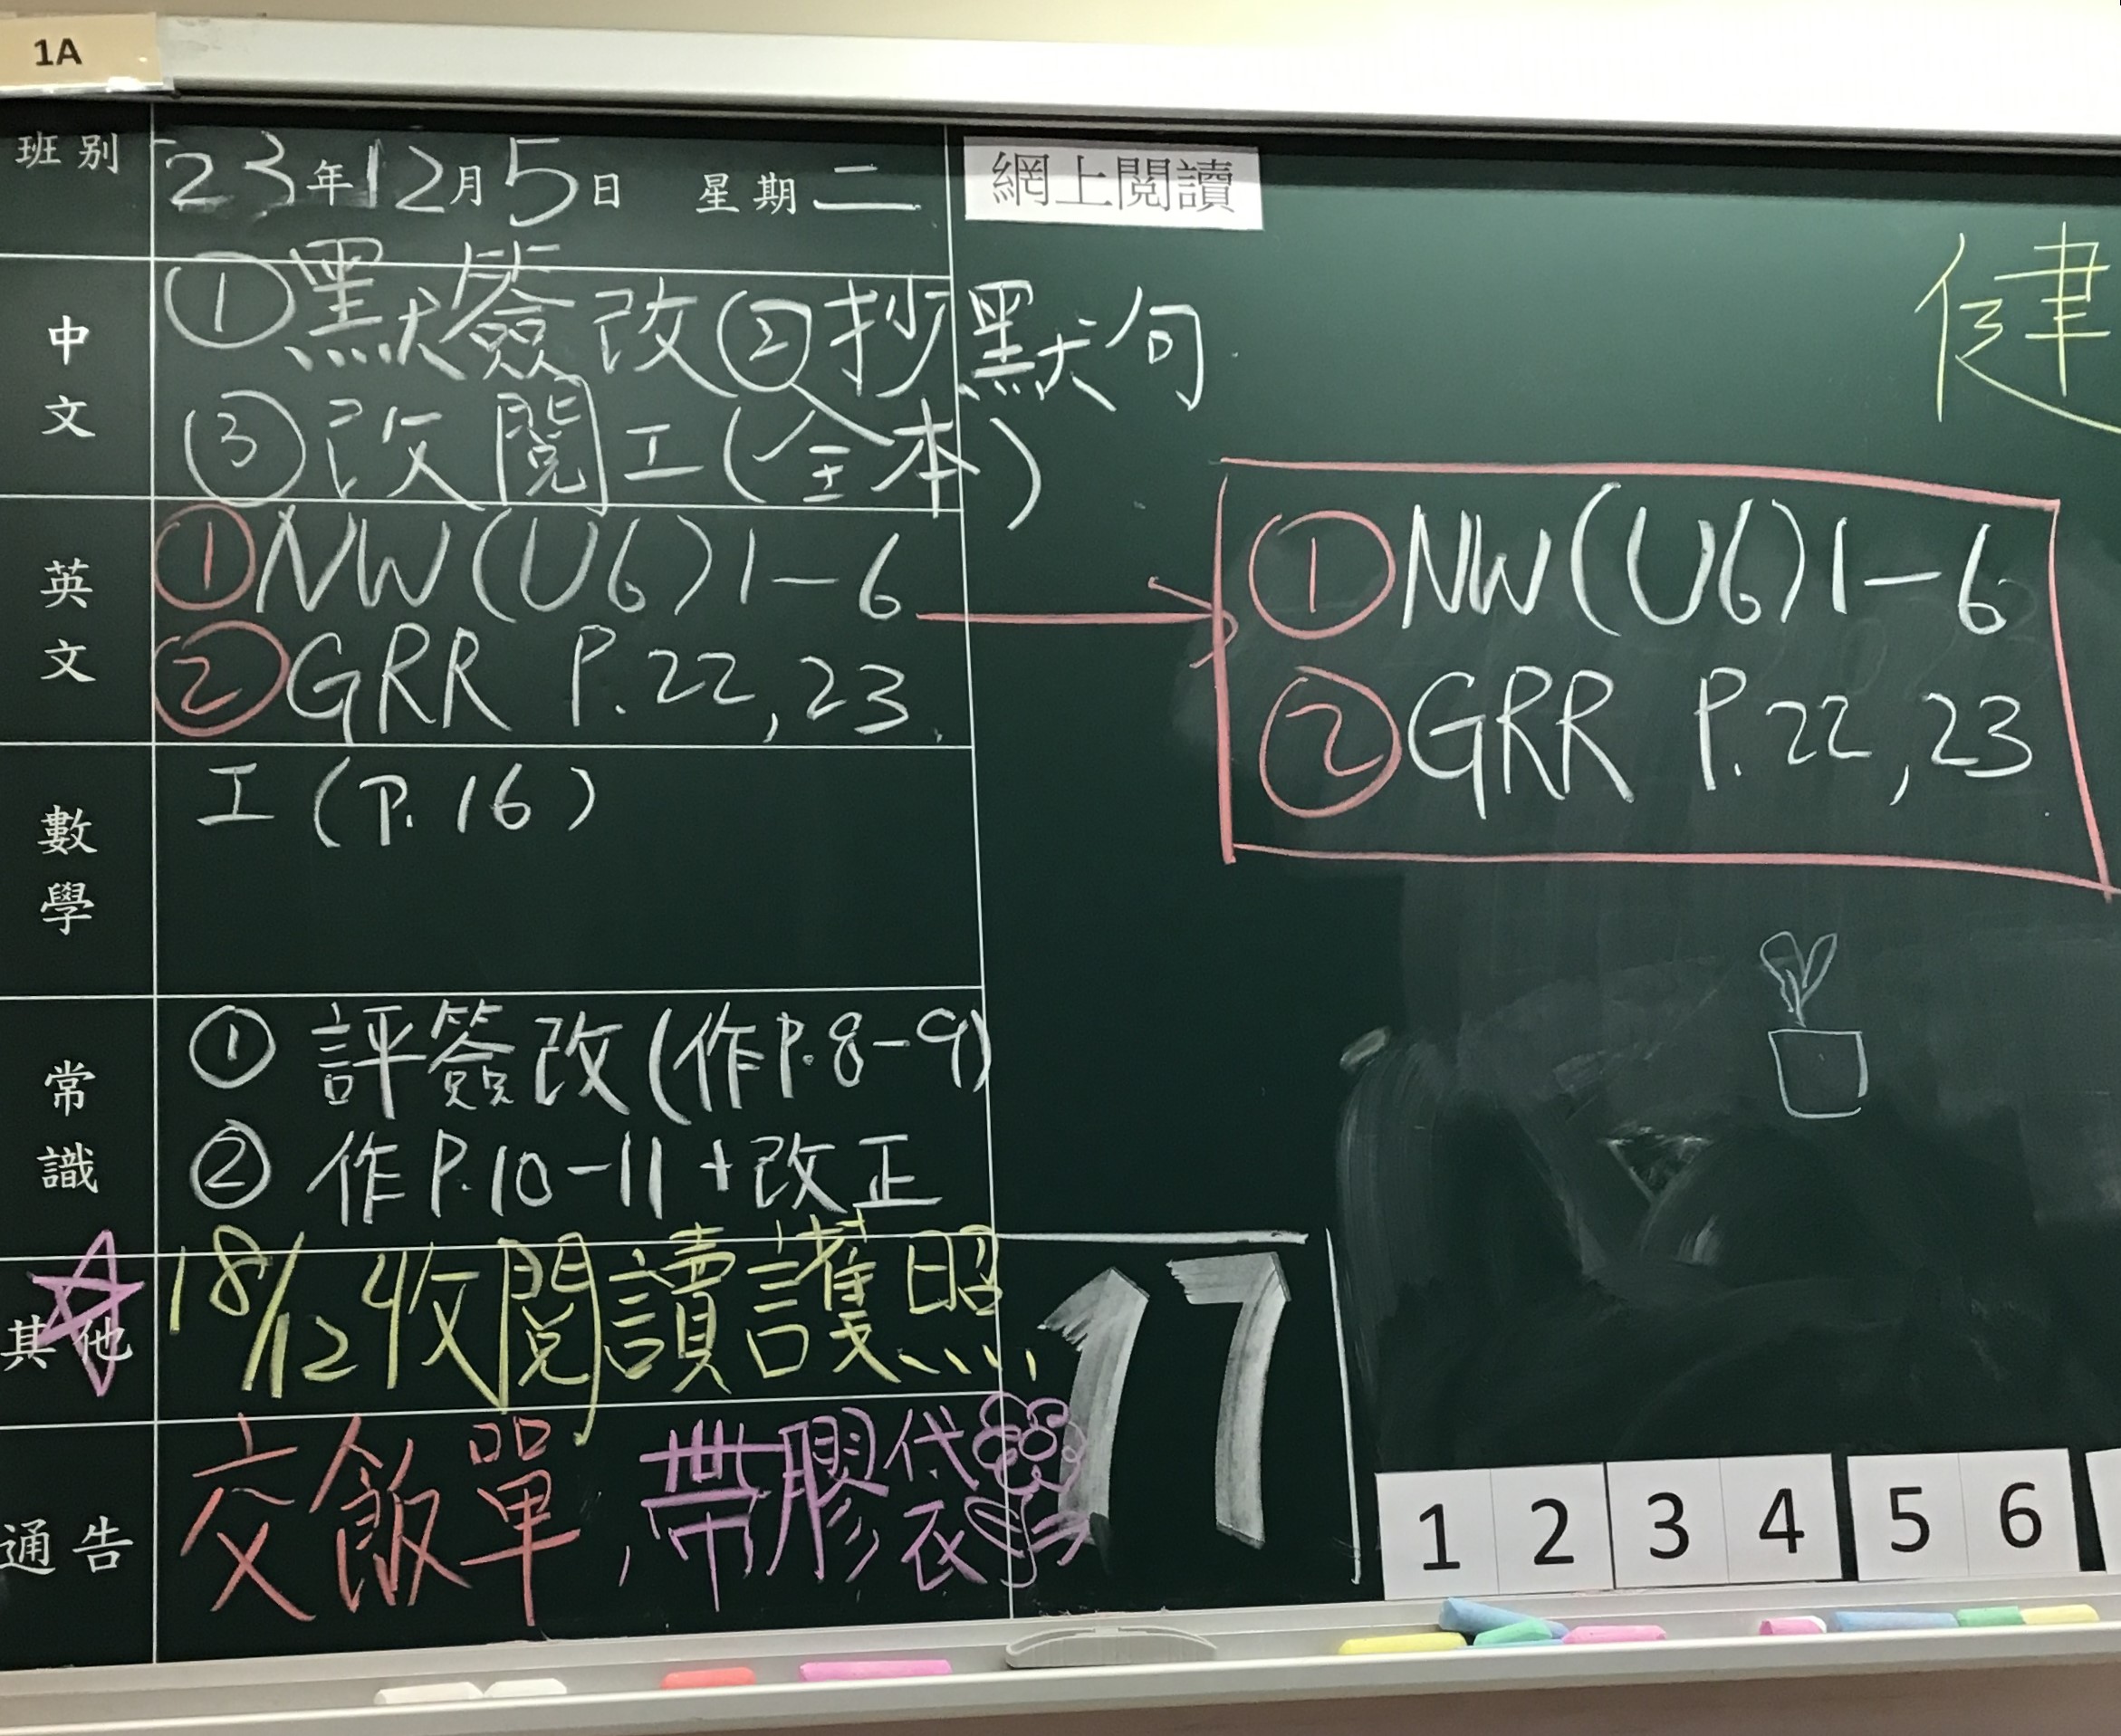 1A
班別
23年12月5日 星期二
網上閱讀
健
中文
①默簽改②抄默句
③改閱工(全本)
英文
①NW(U6)1-6
②GRR P.22,23.
①NW(U6)1-6
②GRR P.22,23
數學
工(P.16)
常識
①評簽改(作P.8-9)
②作P.10-11+改正
其他
18/12收閱讀護照
17
通告
交飯單,帶膠袋
1 2 3 4 5 6